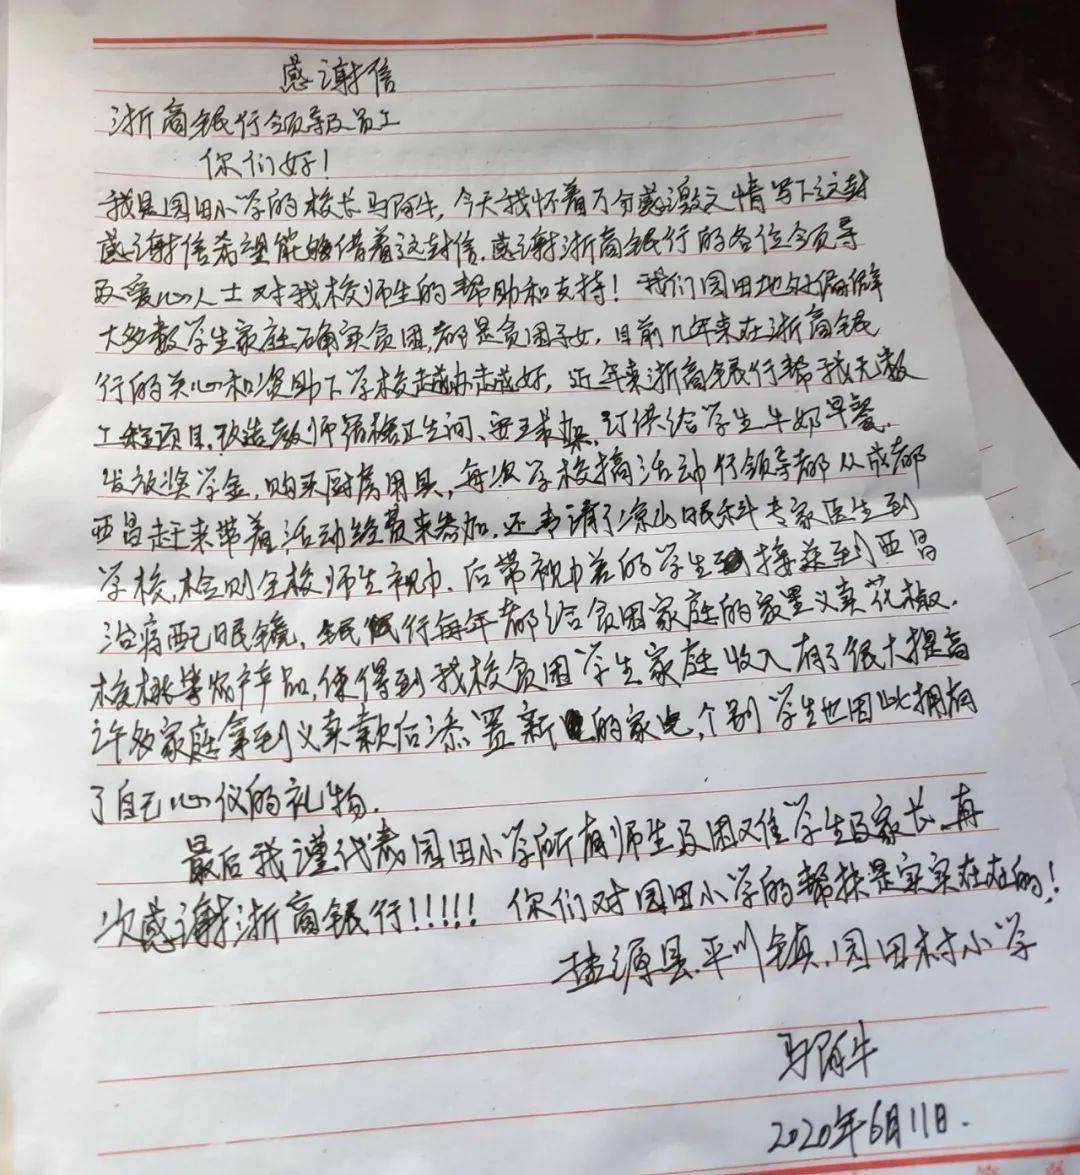 感谢信
浙商银行领导及员工
你们好！
我是园田小学的校长马阿牛，今天我怀着万分感激之情写下这封
感谢信希望能够借着这封信，感谢浙商银行的各位领导
及爱心人士对我校师生的帮助和支持！我们园田地处偏僻
大多数学生家庭确实贫困，都是贫困子女，目前几年来在浙商银
行的关心和资助下学校越办越好，近年来浙商银行帮我无数
工程项目，改造教师宿楼卫生间、订供给学生牛奶早餐，
发放奖学金，购买厨房用具，每次学校搞活动行领导都从成都
西昌赶来带着活动经费来参加，还专请了凉山眼科专家医生到
学校，检测全校师生视力，后带视力差的学生到接送到西昌
治病配眼镜，银行每年都给贫困家庭的家里义卖花椒，
核桃等产品，使得到我校贫困学生家庭收入有了很大提高
许多家庭拿到义卖款后添置新的家电，个别学生也因此拥有
了自己心仪的礼物，
最后我谨代表园田小学所有师生及困难学生及家长，再
次感谢浙商银行！！！！！你们对园田小学的帮扶是实实在在的！
盐源县，平川镇，园田村小学
马阿牛
2020年6月11日．